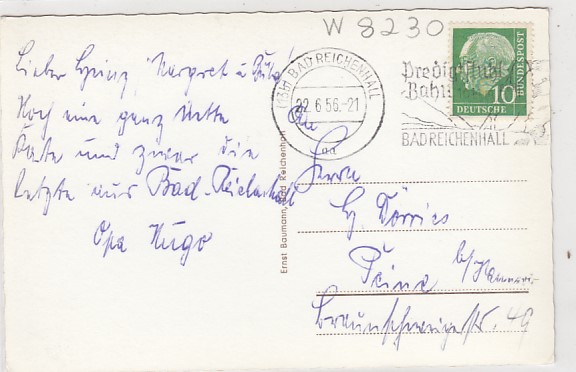 W 8230
Lieber Heinz, Margret u.
Noch eine ganz nette
Karte und zwar die
letzte aus Bad-Reichenhall
Opa Hugo
(13b) BAD REICHENHALL
22.6.56.-21
Predigtstuhl
Bahn
BAD REICHENHALL
DEUTSCHE BUNDESPOST
10
Ernst Baumann, Bad Reichenhall
An
Herrn
Hz Dörries
Peine b/Hannover
Braunschweigerstr. 49